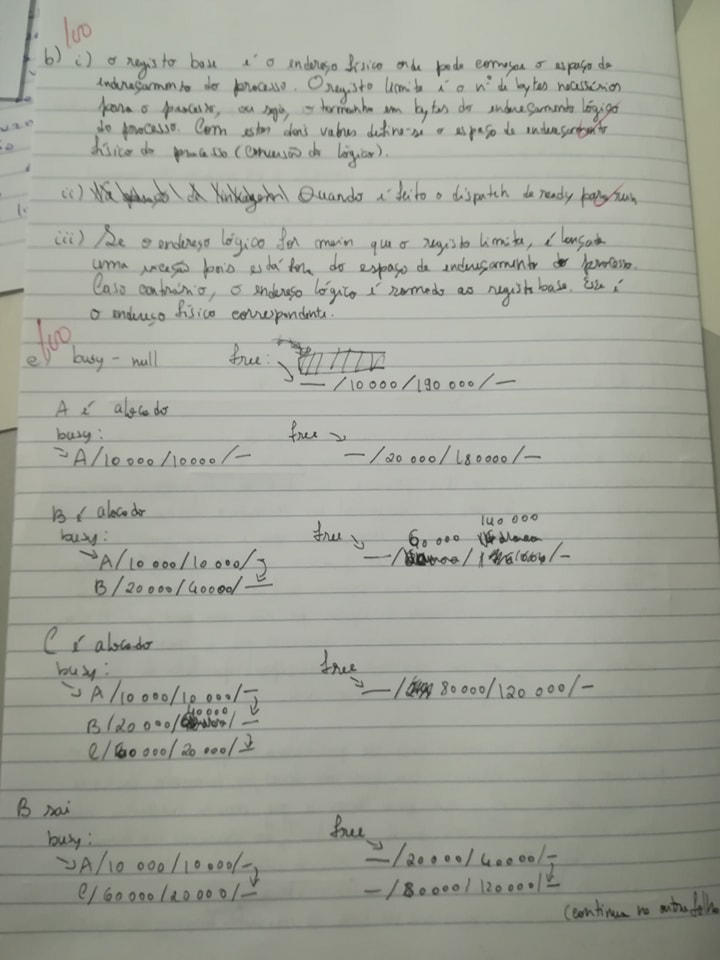 100
b) i) O registo base é o endereço físico onde pode começar o espaço de
endereçamento do processo. O registo limite é o nº de bytes necessários
para o processo, ou seja, o tamanho em bytes do endereçamento lógico
do processo. Com estes dois valores define-se o espaço de endereçamento
físico do processo (conversão do lógico).
ii) Quando é feito o dispatch de ready para run
iii) Se o endereço lógico for maior que o registo limite, é lançada
uma exceção pois está fora do espaço de endereçamento do processo.
Caso contrário, o endereço lógico é somado ao registo base. Esse é
o endereço físico correspondente.
100
e) busy - null free:
— / 10 000 / 190 000 / —
A é alocado
busy: free
A / 10 000 / 10000 / — — / 20 000 / 180000 / —
B é alocado
busy: free 60 000 140 000
A / 10 000 / 10 000 / — / / —
B / 20 000 / 40000 / —
C é alocado
busy: free
A / 10 000 / 10 000 / — — / 80 000 / 120 000 / —
B / 20 000 / 40000 / —
C / 60 000 / 20 000 / —
B sai
busy: free
A / 10 000 / 10000 / — — / 20000 / 40000 / —
C / 60000 / 20000 / — — / 80000 / 120000 / —
(continua na outra folha